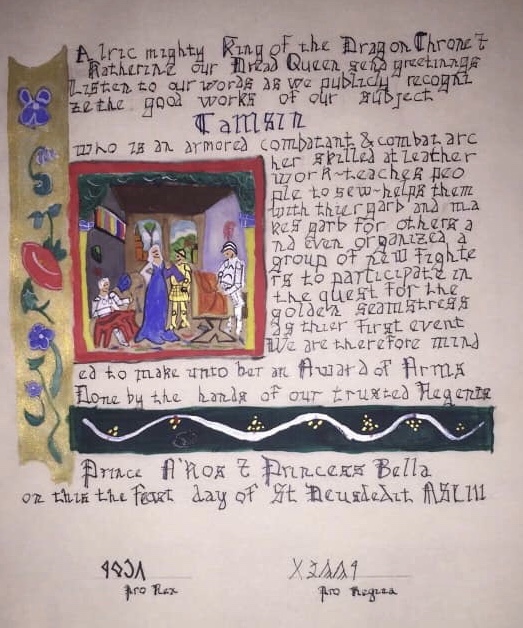 Alric mighty King of the Dragon Throne &
Katherine our Dread Queen send greetings
Listen to our words as we publicly recogni
ze the good works of our subject
Tamsin
who is an armored combatant & combat arc
her skilled at leather
work-teaches peo
ple to sew-helps them
with thier garb and ma
kes garb for others a
nd even organized a
group of new fighte
rs to participate in
the quest for the
golden seamstress
as thier first event
We are therefore mind
ed to make unto her an Award of Arms
Done by the hands of our trusted Regents
Prince A'Kos & Princess Bella
on this the feast day of St Deusdedit ASLIII
Pro Rex
Pro Regina